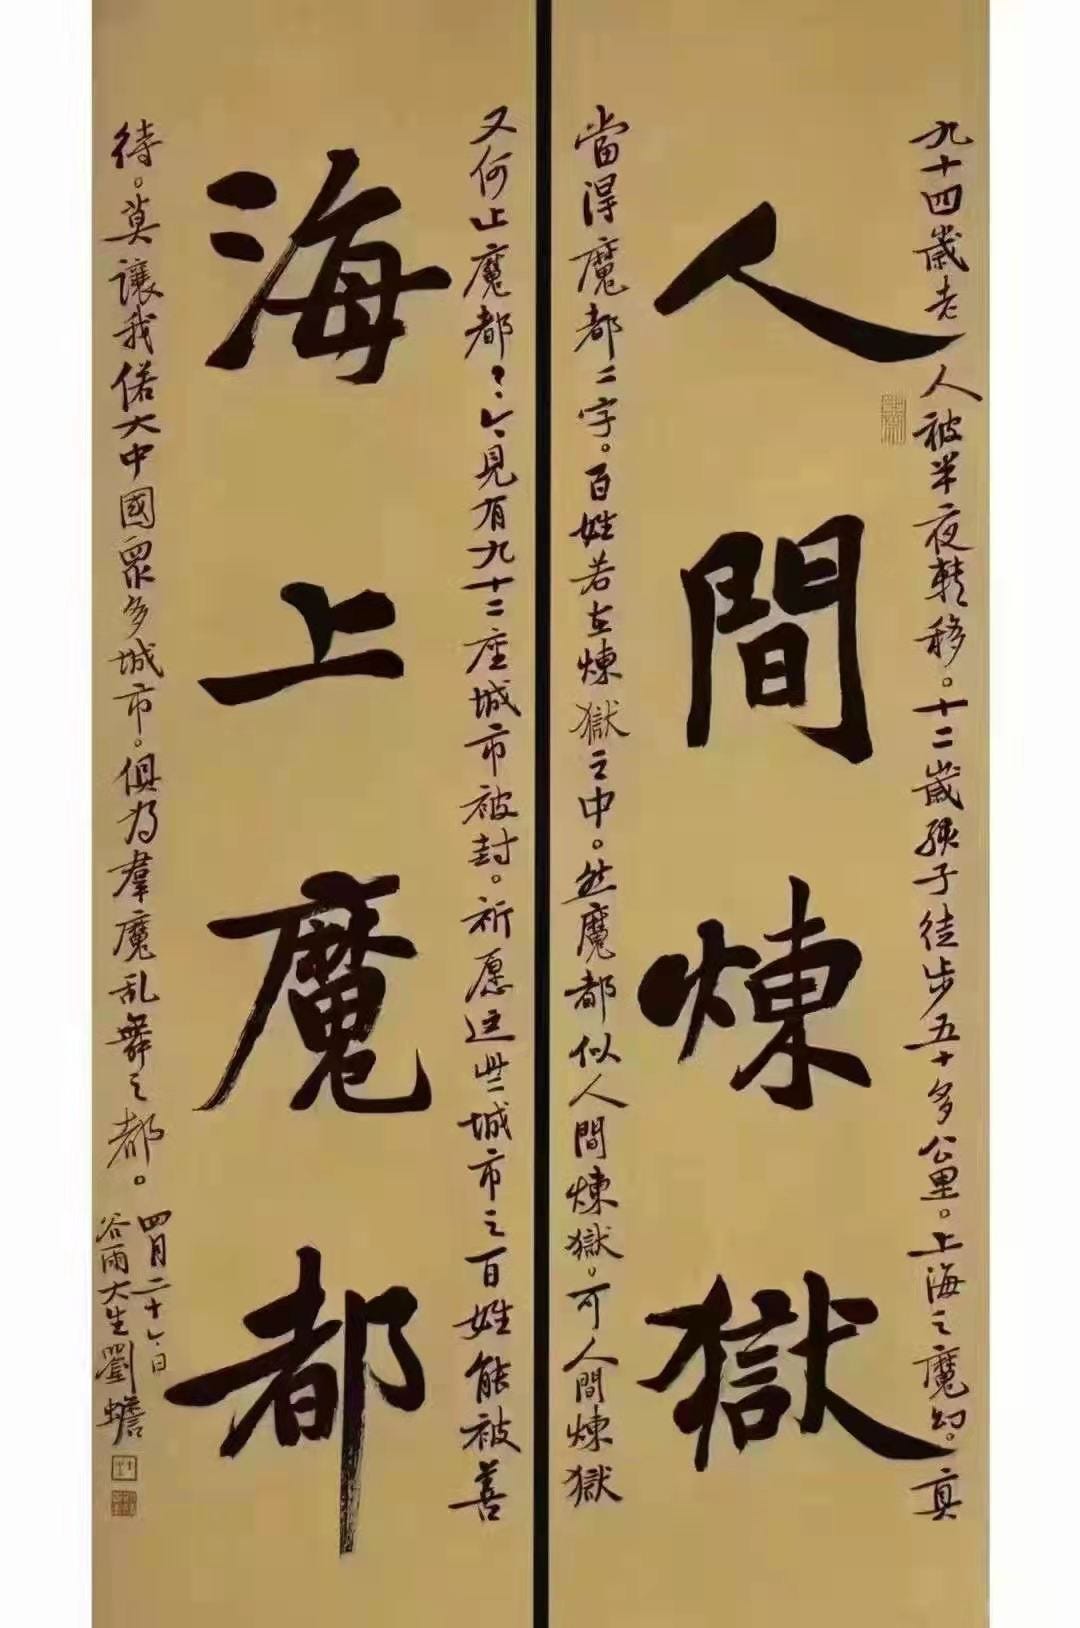 九十四歲老人被半夜轉移。十二歲孩子徒步五十多公里。上海之魔幻。真
人間煉獄
當得魔都二字。百姓若在煉獄之中。然魔都似人間煉獄。可人間煉獄
又何止魔都？今見有九十二座城市被封。祈愿這些城市之百姓能被善
海上魔都
待。莫讓我偌大中國眾多城市。俱为羣魔乱舞之都。
四月二十六日
谷雨大生劉蟾